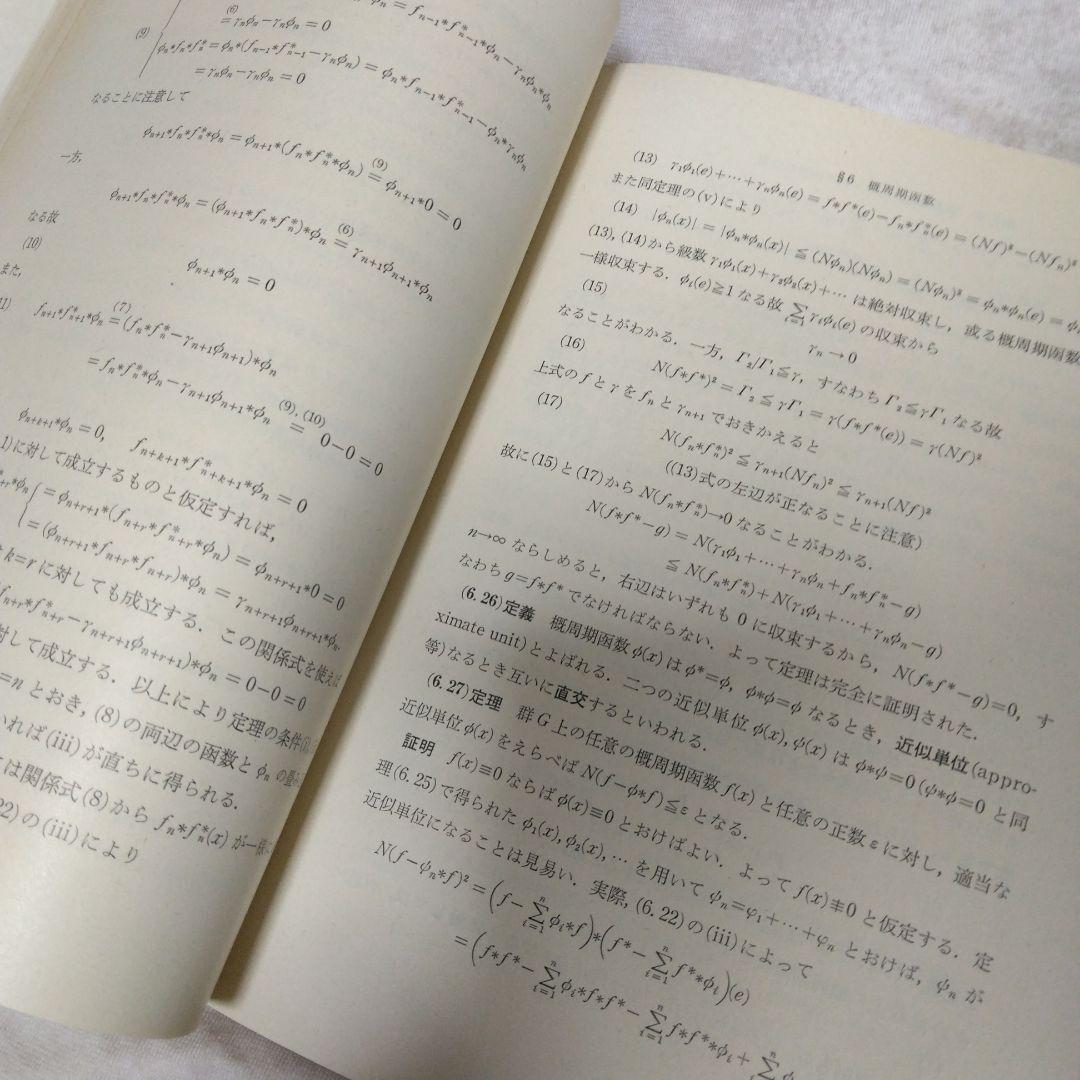 (6)
= γₙϕₙ − γₙϕₙ = 0
(9)
ϕₙ*fₙ*fₙ* = ϕₙ*(fₙ₋₁*f*ₙ₋₁ − γₙϕₙ) = ϕₙ*fₙ₋₁*f*ₙ₋₁ − ϕₙ*γₙϕₙ
= γₙϕₙ − γₙϕₙ = 0
なることに注意して
ϕₙ₊₁*fₙ*fₙ**ϕₙ = ϕₙ₊₁*(fₙ*fₙ**ϕₙ) (9)= ϕₙ₊₁*0 = 0
一方,
ϕₙ₊₁*fₙ*fₙ**ϕₙ = (ϕₙ₊₁*fₙ*fₙ*)*ϕₙ (6)= γₙ₊₁ϕₙ₊₁*ϕₙ
なる故
(10)
ϕₙ₊₁*ϕₙ = 0
また,
fₙ₊₁*f*ₙ₊₁*ϕₙ (7)= (fₙ*fₙ* − γₙ₊₁ϕₙ₊₁)*ϕₙ
= fₙ*fₙ**ϕₙ − γₙ₊₁ϕₙ₊₁*ϕₙ (9),(10)= 0−0 = 0
ϕₙ₊ₖ₊₁*ϕₙ = 0, fₙ₊ₖ₊₁*f*ₙ₊ₖ₊₁*ϕₙ = 0
1)に対して成立するものと仮定すれば,
= ϕₙ₊ᵣ₊₁*(fₙ₊ᵣ*f*ₙ₊ᵣ*ϕₙ) = ϕₙ₊ᵣ₊₁*0 = 0
= (ϕₙ₊ᵣ₊₁*fₙ₊ᵣ*fₙ₊ᵣ)*ϕₙ = γₙ₊ᵣ₊₁ϕₙ₊ᵣ₊₁*ϕₙ
k=r に対しても成立する. この関係式を使えば
fₙ₊ᵣ*f*ₙ₊ᵣ − γₙ₊ᵣ₊₁ϕₙ₊ᵣ₊₁)*ϕₙ = 0−0 = 0
対して成立する. 以上により定理の条件
=n とおき, (8)の両辺の函数と ϕₙ の
いれば(iii)が直ちに得られる.
は関係式(8)から fₙ*fₙ*(x) が一様に
22)の(iii)により
§6 概周期函数
(13) γ₁ϕ₁(e)+⋯+γₙϕₙ(e) = f*f*(e) − fₙ*fₙ*(e) = (Nf)² − (Nfₙ)²
また同定理の(v)により
(14) |ϕₙ(x)| = |ϕₙ*ϕₙ(x)| ≦ (Nϕₙ)(Nϕₙ) = (Nϕₙ)² = ϕₙ*ϕₙ(e) =
(13), (14)から級数 γ₁ϕ₁(x)+γ₂ϕ₂(x)+⋯ は絶対収束し, 或る概周期函数
一様収束する. ϕᵢ(e)≧1 なる故 Σᵢ₌₁ γᵢϕᵢ(e) の収束から
(15) γₙ → 0
なることがわかる. 一方, Γ₂/Γ₁≦γ, すなわち Γ₂≦γΓ₁ なる故
(16) N(f*f*)² = Γ₂ ≦ γΓ₁ = γ(f*f*(e)) = γ(Nf)²
上式の f と γ を fₙ と γₙ₊₁ でおきかえると
(17) N(fₙ*fₙ*)² ≦ γₙ₊₁(Nfₙ)² ≦ γₙ₊₁(Nf)²
((13)式の左辺が正なることに注意)
故に(15)と(17)から N(fₙ*fₙ*)→0 なることがわかる.
N(f*f*−g) = N(γ₁ϕ₁+⋯+γₙϕₙ+fₙ*fₙ*−g)
≦ N(fₙ*fₙ*)+N(γ₁ϕ₁+⋯+γₙϕₙ−g)
n→∞ ならしめると, 右辺はいずれも 0 に収束するから, N(f*f*−g)=0, す
なわち g=f*f* でなければならない. よって定理は完全に証明された.
(6.26)定義 概周期函数 ϕ(x) は ϕ*=ϕ, ϕ*ϕ=ϕ なるとき, 近似単位(appro-
ximate unit)とよばれる. 二つの近似単位 ϕ(x), ψ(x) は ϕ*ψ=0 (ψ*ϕ=0 と同
等)なるとき互いに直交するといわれる.
(6.27)定理 群 G 上の任意の概周期函数 f(x) と任意の正数 ε に対し, 適当な
近似単位 ϕ(x) をえらべば N(f−ϕ*f)≦ε となる.
証明 f(x)≡0 ならば ϕ(x)≡0 とおけばよい. よって f(x)≢0 と仮定する. 定
理(6.25)で得られた ϕ₁(x), ϕ₂(x), ⋯ を用いて ψₙ=φ₁+⋯+φₙ とおけば, ψₙ が
近似単位になることは見易い. 実際, (6.22)の(iii)によって
N(f−ψₙ*f)² = (f−Σⁿᵢ₌₁ϕᵢ*f)*(f*−Σⁿᵢ₌₁f**ϕᵢ)(e)
= (f*f*−Σⁿᵢ₌₁ϕᵢ*f*f*−Σⁿᵢ₌₁f*f**ϕᵢ+Σⁿᵢ₌₁